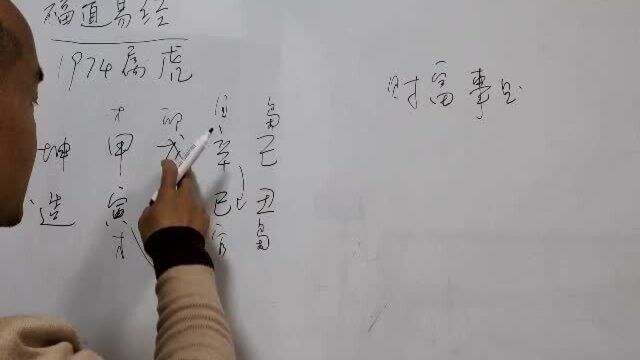 福直易经
1974属虎
财富事业
才 印 日 枭
坤 甲 戊 辛 己
造 寅 巳 丑
才 官 枭